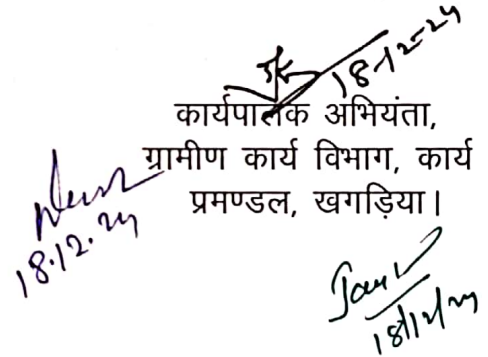 18-12-24
कार्यपालक अभियंता,
ग्रामीण कार्य विभाग, कार्य
प्रमण्डल, खगड़िया।
18.12.24
18/12/24